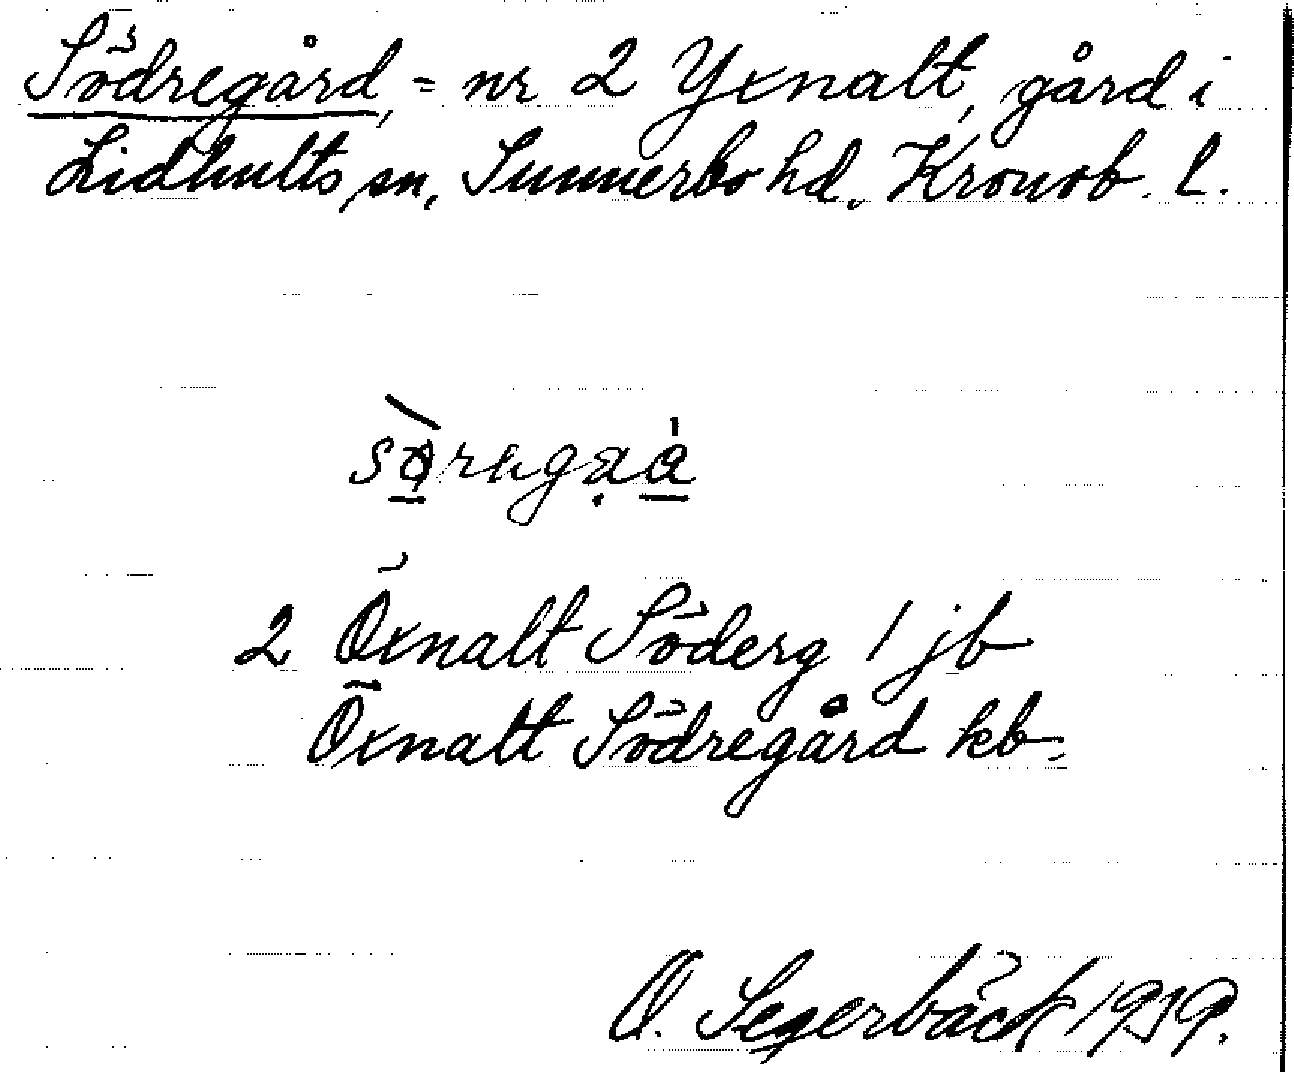 Södregård, = nr 2 Yxnalt, gård i
Lidhults sn, Sunnerbo hd. Kronob. l.
2 Öxnalt Söderg 1 jb
Öxnalt Södregård kb
O. Segerbäck 1919.